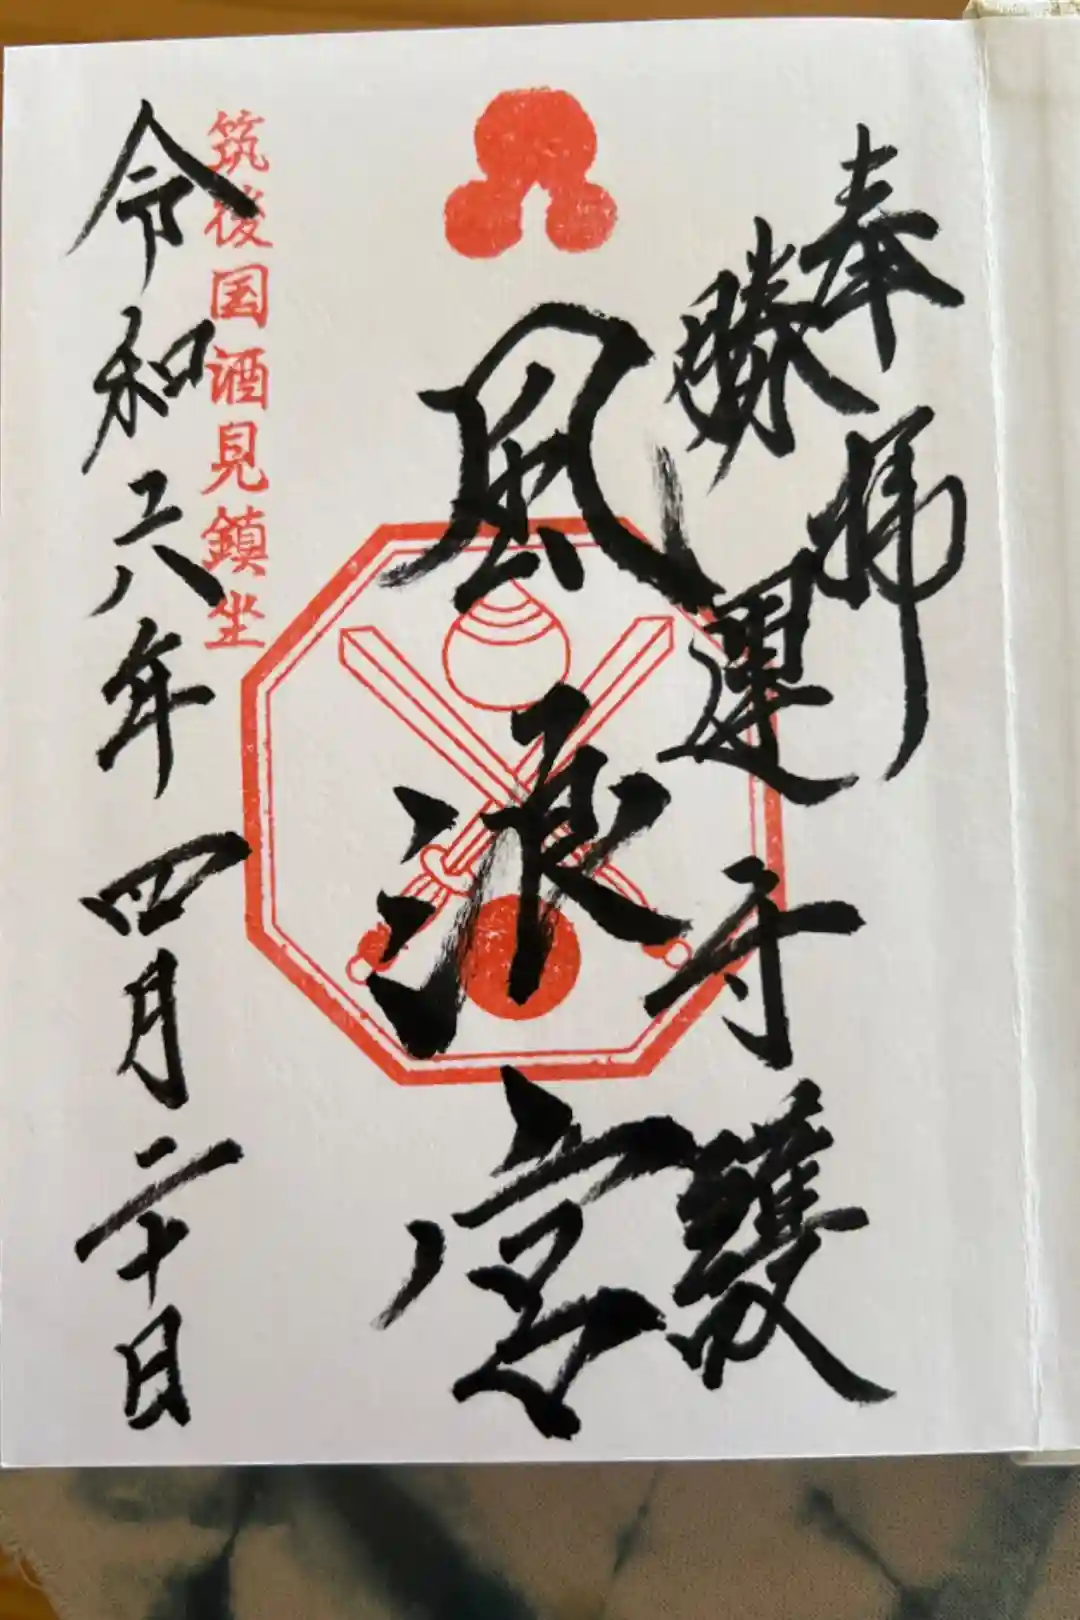 奉拝
勝運守護
風浪宮
筑後国酒見鎮坐
令和六年四月二十日